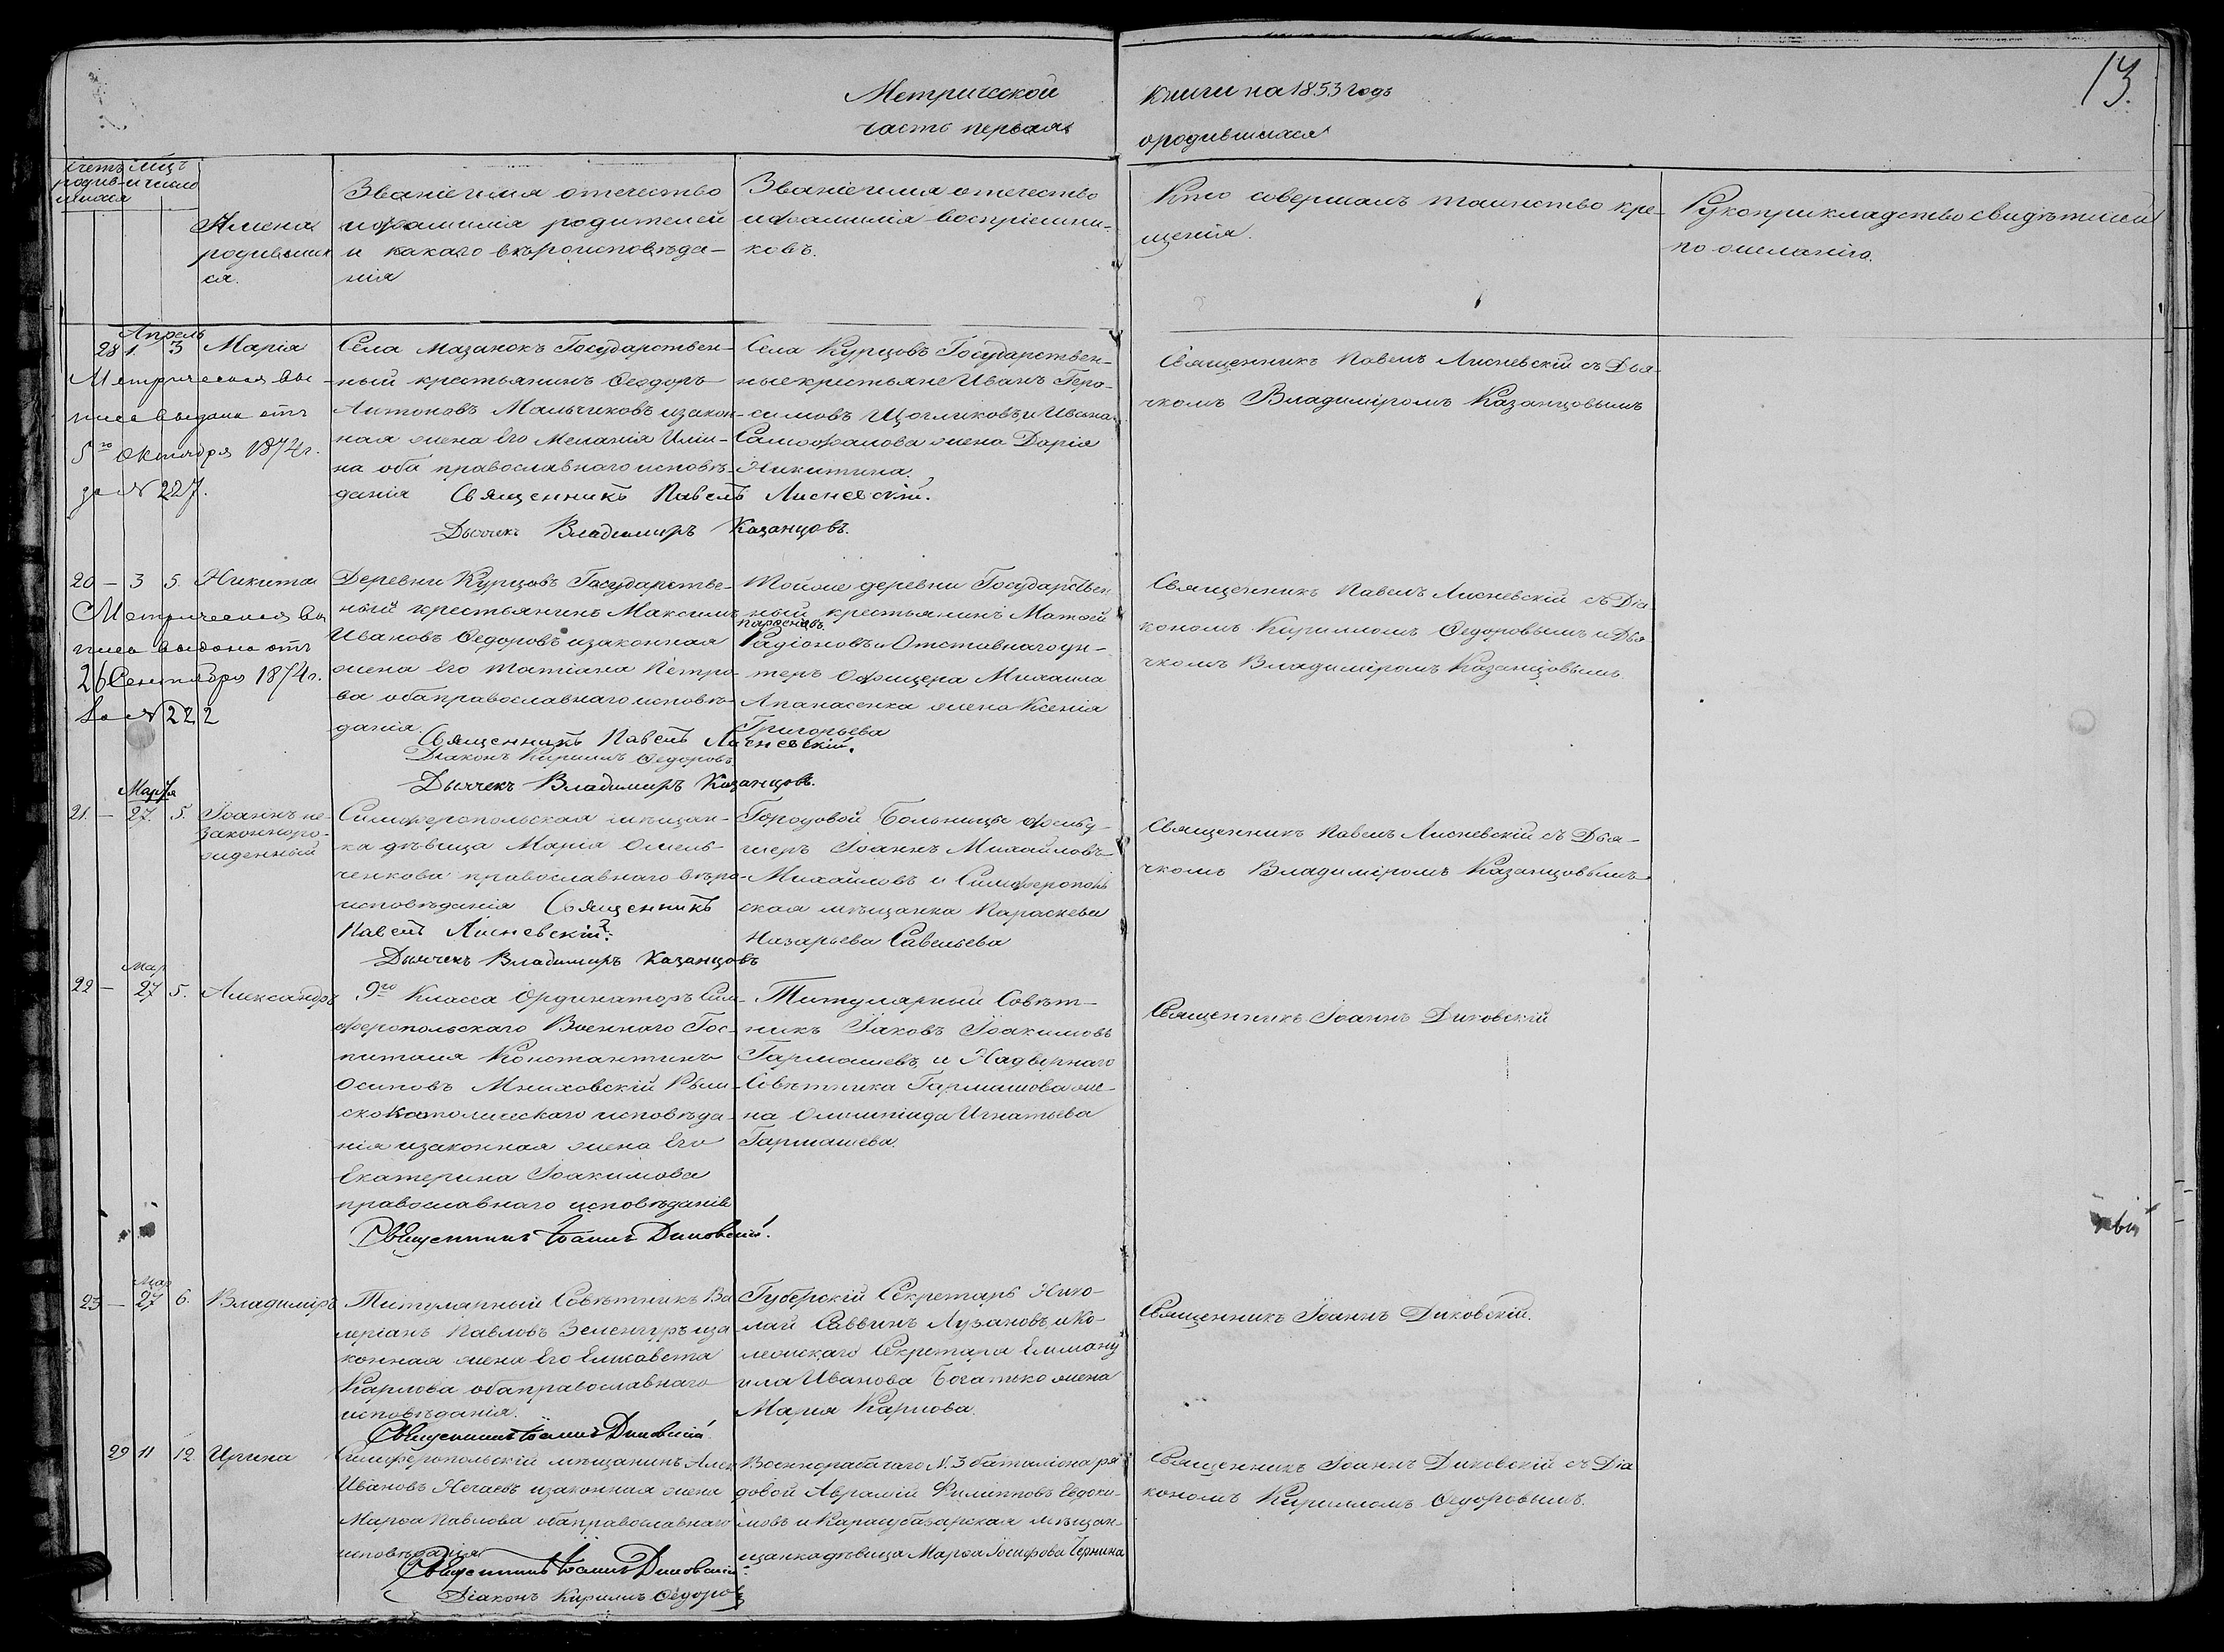 13.
Метрической книги на 1853 годъ
часть первая о родившихся
Счетъ
родив-
шихся
лицъ
и число
Имена
родивших
ся.
Званіе имя отечество
и фамилія родителей
и какаго вѣроисповѣда-
нія
Званіе имя отечество
и фамилія воспріемни-
ковъ.
Кто совершалъ таинство кре-
щенія.
Рукоприкладство свидѣтелей
по желанію.
Апрель
28 1. 3 Марія
Метрическая вы
пись выдана отъ
5го Октября 1874 г.
за № 227.
Села Мазанокъ Государствен-
ный крестьянинъ Ѳеодоръ
Антоновъ Мальчиковъ и закон-
ная жена его Меланія Иліи-
на оба православнаго исповѣ-
данія Священникъ Павелъ Лисневскій.
Дьячекъ Владимиръ Казанцовъ.
Села Курцовъ Государствен-
ные крестьяне Иванъ Гера-
симовъ Щегликовъ, и Ивана
Самофалова жена Дарія
Никитина.
Священникъ Павелъ Лисневскій съ Дья-
чкомъ Владиміромъ Казанцовымъ
20 — 3 5. Никита
Метрическая вы
пись выдана отъ
26 Сентября 1874 г.
За № 222
Деревни Курцовъ Государстве-
ный крестьянинъ Максимъ
Ивановъ Ѳедоровъ и законная
жена его Татіана Петро-
ва оба православнаго исповѣ-
данія.
Священникъ Павелъ Лисневскій.
Діаконъ Кириллъ Ѳедоровъ
Дьячекъ Владимиръ Казанцовъ.
Тойже деревни Государствен
ный крестьянинъ Матѳей
Радіоновъ и Отставнаго ун-
теръ Офицера Михаила
Апанасенка жена Ксенія
Григорьева
Священникъ Павелъ Лисневскій съ Діа
кономъ Кирилломъ Ѳедоровымъ и Дья
чкомъ Владиміромъ Казанцовымъ.
Марта
21. — 27. 5. Іоаннъ не-
законноро-
жденный
Симферопольская мѣщан-
ка дѣвица Марія Омель-
ченкова православнаго вѣро-
исповѣданія Священникъ
Павелъ Лисневскій.
Дьячекъ Владимиръ Казанцовъ
Городовой Больницы фельд-
шеръ Іоаннъ Михайловъ
Михайловъ и Симферополь
ская мѣщанка Параскева
Назарьева Савельева
Священникъ Павелъ Лисневскій съ Дья-
чкомъ Владиміромъ Казанцовымъ
Мар
22 — 27 5. Александръ
9го Класса Ординаторъ Сим-
феропольскаго Военнаго Гос-
питаля Константинъ
Осиповъ Мниховскій Рим-
ско католическаго исповѣда-
нія и законная жена Его
Екатерина Іоакимова
православнаго исповѣданія
Священникъ Іоаннъ Диковскій.
Титулярный Совѣт-
никъ Іаковъ Іоакимовъ
Гармашевъ, и Надворнаго
Совѣтника Гармашова же-
на Олимпіада Игнатьева
Гармашева.
Священникъ Іоаннъ Диковскій
Мар
23 — 27 6. Владиміръ
Титулярный Совѣтникъ Ва
леріанъ Павловъ Зеленгуръ и за
конная жена Его Елисавета
Карлова оба православнаго
исповѣданія.
Священникъ Іоаннъ Диковскій.
Губерскій Секретарь Нико-
лай Саввинъ Лузановъ, и Ко-
лежскаго Секретаря Емману
ила Иванова Богатько жена
Марія Карлова.
Священникъ Іоаннъ Диковскій.
29 11 12. Ирина
Симферопольскій мѣщанинъ Алек
Ивановъ Нечаевъ и законная жена
Марѳа Павлова оба православнаго
исповѣданія
Священникъ Іоаннъ Диковскій.
Діаконъ Кириллъ Ѳедоровъ
Военнорабочаго № 3 баталіона ря
довой Аврамій Филипповъ Евдоки-
мовъ и Карасубазарская мѣщан-
щанка дѣвица Марѳа Іосифова Чернина
Священникъ Іоаннъ Диковскій съ Діа
кономъ Кирилломъ Ѳедоровымъ.